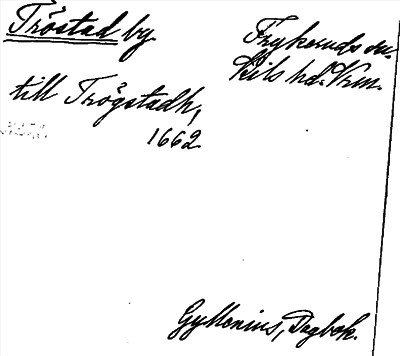 Tröstad by
Frykeruds sn.
Kils hd. Vrm.
till Trögstadh,
1662
Gyllenius, Dagbok.